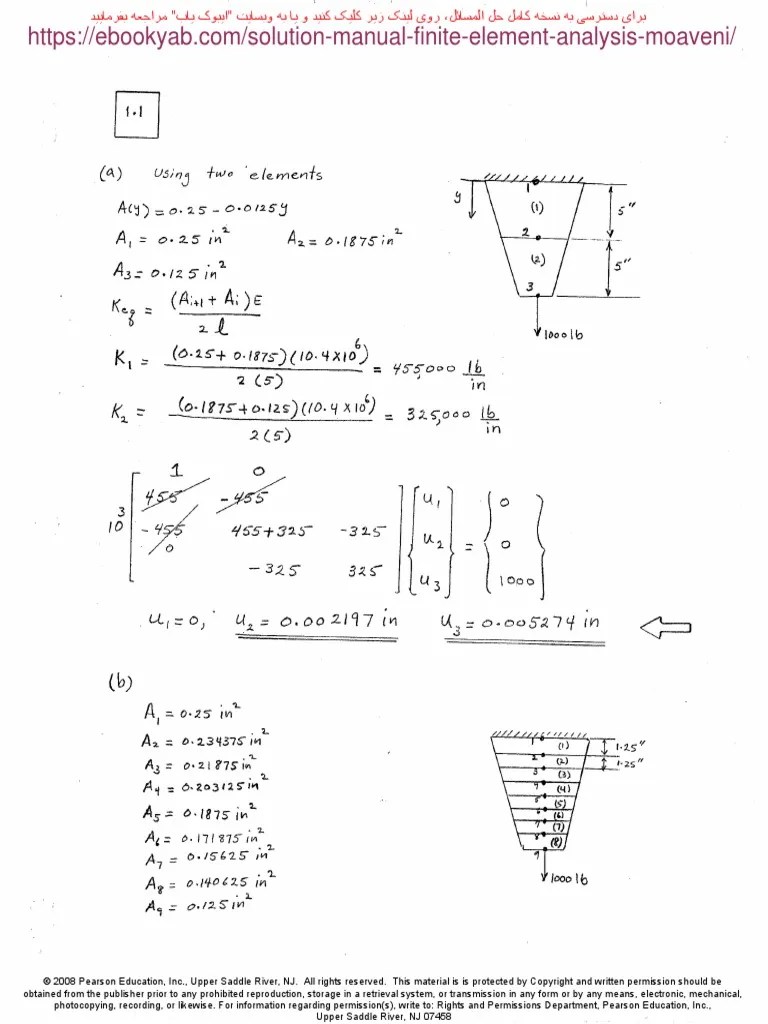 برای دسترسی به نسخه کامل حل المسائل، روی لینک زیر کلیک کنید و یا به وبسایت "ایبوک یاب" مراجعه بفرمایید
https://ebookyab.com/solution-manual-finite-element-analysis-moaveni/
1.1
(a) Using two elements
A(y) = 0.25 - 0.0125y
A₁ = 0.25 in² A₂ = 0.1875 in²
A₃ = 0.125 in²
Keq = (Ai+1 + Ai)E / 2l
K₁ = (0.25 + 0.1875)(10.4 x 10⁶) / 2(5) = 455,000 lb/in
K₂ = (0.1875 + 0.125)(10.4 x 10⁶) / 2(5) = 325,000 lb/in
y
1
(1)
5"
2
(2)
5"
3
1000 lb
1 0
455 -455
10³ -455 455+325 -325 u₁ 0
0 u₂ = 0
-325 325 u₃ 1000
u₁ = 0, u₂ = 0.002197 in u₃ = 0.005274 in
(b)
A₁ = 0.25 in²
A₂ = 0.234375 in²
A₃ = 0.21875 in²
A₄ = 0.203125 in²
A₅ = 0.1875 in²
A₆ = 0.171875 in²
A₇ = 0.15625 in²
A₈ = 0.140625 in²
A₉ = 0.125 in²
1 (1) 1.25"
2 (2) 1.25"
3 (3)
4 (4)
5 (5)
(6)
7 (7)
8 (8)
9
1000 lb
© 2008 Pearson Education, Inc., Upper Saddle River, NJ. All rights reserved. This material is is protected by Copyright and written permission should be
obtained from the publisher prior to any prohibited reproduction, storage in a retrieval system, or transmission in any form or by any means, electronic, mechanical,
photocopying, recording, or likewise. For information regarding permission(s), write to: Rights and Permissions Department, Pearson Education, Inc.,
Upper Saddle River, NJ 07458